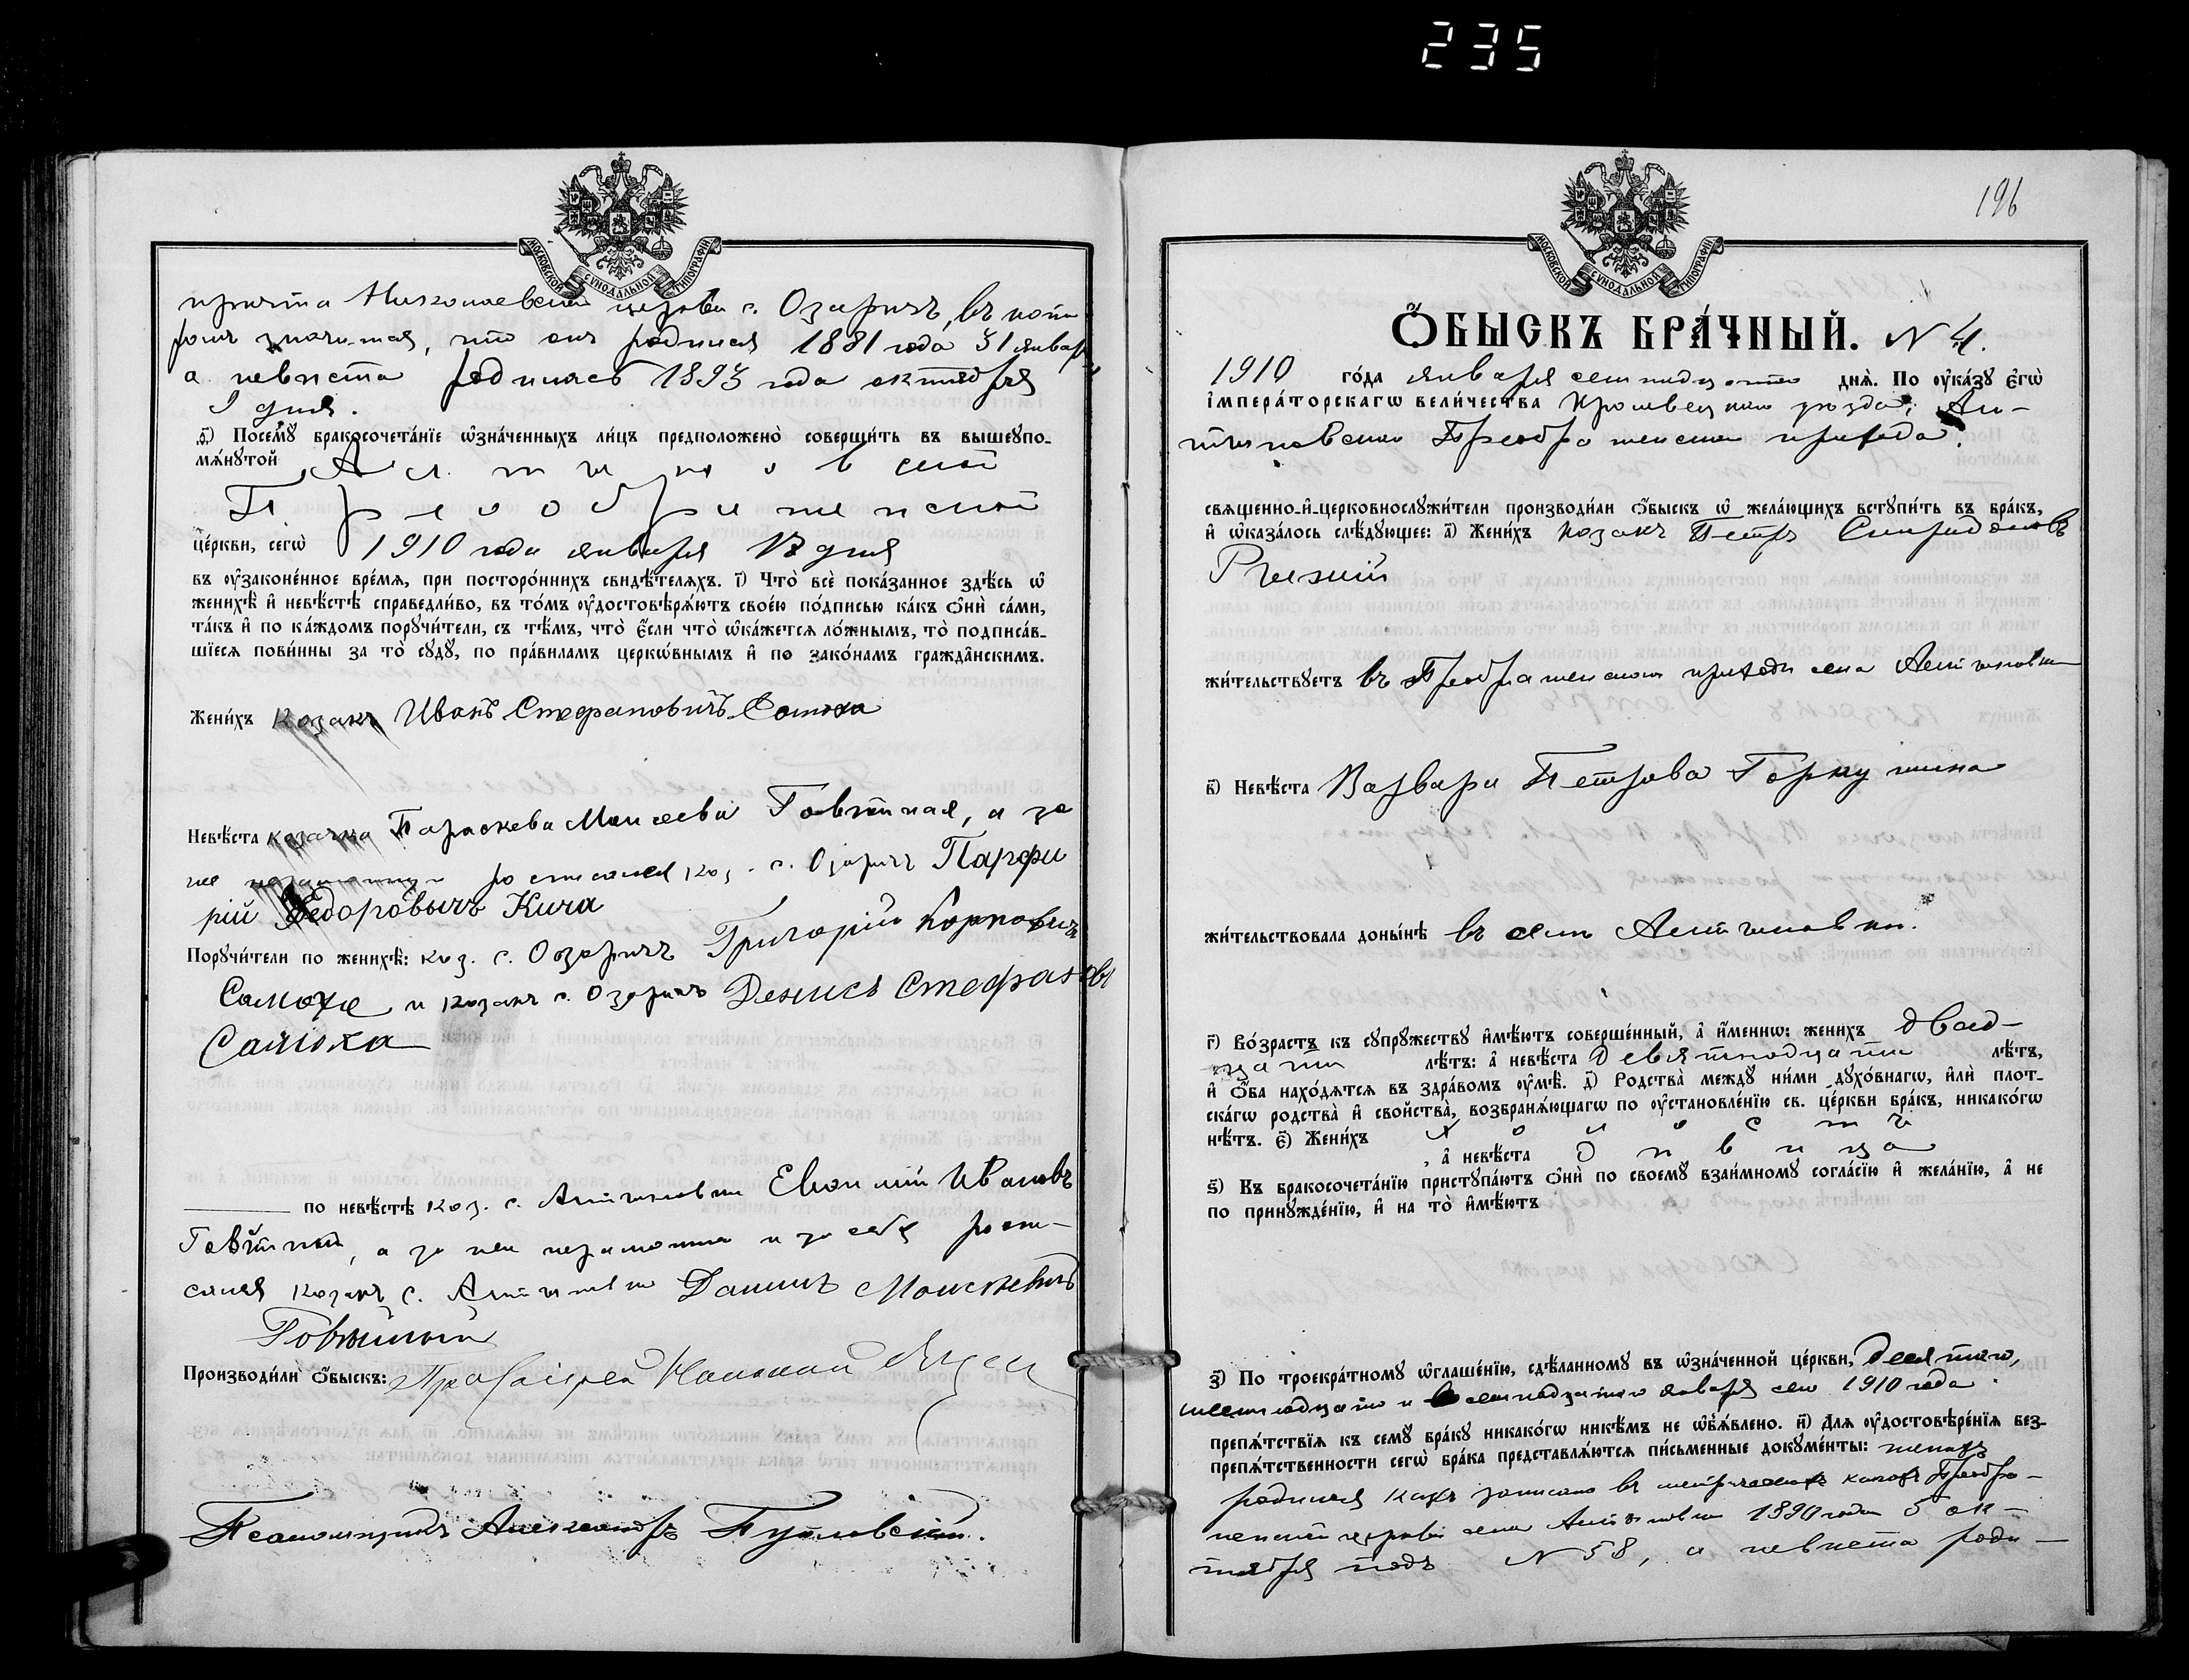 235
МОСКОВСКОЙ СУНОДАЛЬНОЙ ТИПОГРАФІИ
причта Николаевской церкви с. Озаричъ, въ кото
ромъ значится, что онъ родился 1881 года 31 января
а невѣста родилась 1893 года октября
9 дня.
Посемꙋ̀ бракосочета́нїе ѡ҆зна́ченныхъ ли́цъ предположено̀ соверши́ть въ вышеꙋпо-
мѧ́нꙋтой Алтиновской
Преображенской
це́ркви, сегѡ̀ 1910 года января 17 дня
въ ᲂу҆законе́нное вре́мѧ, при посторо́ннихъ свидѣ́телѧхъ. і҃) Что̀ всѐ пока́занное здѣ́сь ѡ҆
женихѣ̀ и҆ невѣ́стѣ справедли́во, въ то́мъ ᲂу҆достовѣрѧ́ютъ свое́ю по́дписью ка́къ ѻ҆нѝ са́ми,
та́къ и҆ по ка́ждомъ порꙋчи́тели, съ тѣ́мъ, что̀ є҆́сли что̀ ѡ҆ка́жетсѧ ло́жнымъ, то̀ подписа́в-
шїесѧ пови́нны за то̀ сꙋдꙋ̀, по пра́виламъ церкѡ́внымъ и҆ по зако́намъ гражда̂нскимъ.
Жени́хъ Козакъ Иванъ Стефановичъ Самоха
Невѣ́ста козачка Параскева Моисеева Говтная, а за
нее росписался коз. с. Озаричъ Парфи
рій Федоровычъ Кича
Порꙋчи́тели по женихѣ̀: коз. с. Озаричъ Григорій Карповичъ
Самоха и козакъ с. Озаричъ Денисъ Стефановъ
Самоха
по невѣ́стѣ коз. с. Алтиновки Ивановъ
а за неграмотна и за себя роспи-
сался козакъ с. Алтиновки Даниилъ Моисеевичъ
Производи́ли ѻ҆́быскъ:
Псаломщикъ Александръ
196
МОСКОВСКОЙ СУНОДАЛЬНОЙ ТИПОГРАФІИ
Ѻ҆́БЫСКЪ БРА́ЧНЫЙ. N 4.
1910 го́да января семнадцатаго днѧ̀. По ᲂу҆ка́зꙋ є҆гѡ̀
і҆мпера́торскагѡ вели́чества Кролевецкаго уѣзда, Ал-
тиновскаго Преображенскаго прихода.
свѧще́нно-и҆-церковнослꙋжи́тели производи́ли ѻ҆́быскъ ѡ҆ жела́ющихъ встꙋпи́ть въ бра́къ,
и҆ ѡ҆каза́лось слѣ́дꙋющее: а҃) Жени́хъ козакъ Петръ Спиридоновъ
жи́тельствꙋетъ въ Преображенскомъ приходѣ села Алтиновки
в҃) Невѣ́ста Варвара Петрова Горкушина
жи́тельствовала доны́нѣ въ селѣ Алтиновки.
г҃) Во́зрастъ къ сꙋпрꙋ́жествꙋ и҆мѣ́ютъ соверше́нный, а҆ и҆́меннѡ: жени́хъ двад-
цати лѣ́тъ: а҆ невѣ́ста девятнадцати лѣ́тъ,
и҆ ѻ҆́ба нахо́дѧтсѧ въ здра́вомъ ᲂу҆мѣ̀. д҃) Родства̀ междꙋ ни́ми дꙋхо́внагѡ, и҆лѝ плот-
ска́гѡ родства̀ и҆ сво́йства̀, возбранѧ́ющагѡ по ᲂу҆становле́нїю св. це́ркви бра́къ, никако́гѡ
нѣ́тъ. є҃) Жени́хъ холостъ
, а҆ невѣ́ста дѣвица
ѕ҃) Къ бракосочета́нїю пристꙋпа́ютъ ѻ҆нѝ по своемꙋ̀ взаи́мномꙋ согла́сїю и҆ жела́нїю, а҆ не
по принꙋжде́нїю, и҆ на то̀ и҆мѣ́ютъ
з҃) По троекра́тномꙋ ѡ҆глаше́нїю, сдѣ́ланномꙋ въ ѡ҆зна́ченной це́ркви, десятаго,
шестнадцатаго и семнадцатаго января сего 1910 года
препѧ́тствїѧ къ семꙋ̀ бра́кꙋ никако́гѡ никѣ́мъ не ѡ҆б̾ѧ́влено. и҃) Длѧ ᲂу҆достовѣре́нїѧ без-
препѧ́тственности сегѡ̀ бра́ка представлѧ́ютсѧ пи́сьменные докꙋме́нты: женихъ
родился какъ записано въ метрической книгѣ Преобра-
женской церкви села Алтиновки 1890 года 5 ок-
тября подъ N 58, а невѣста роди-